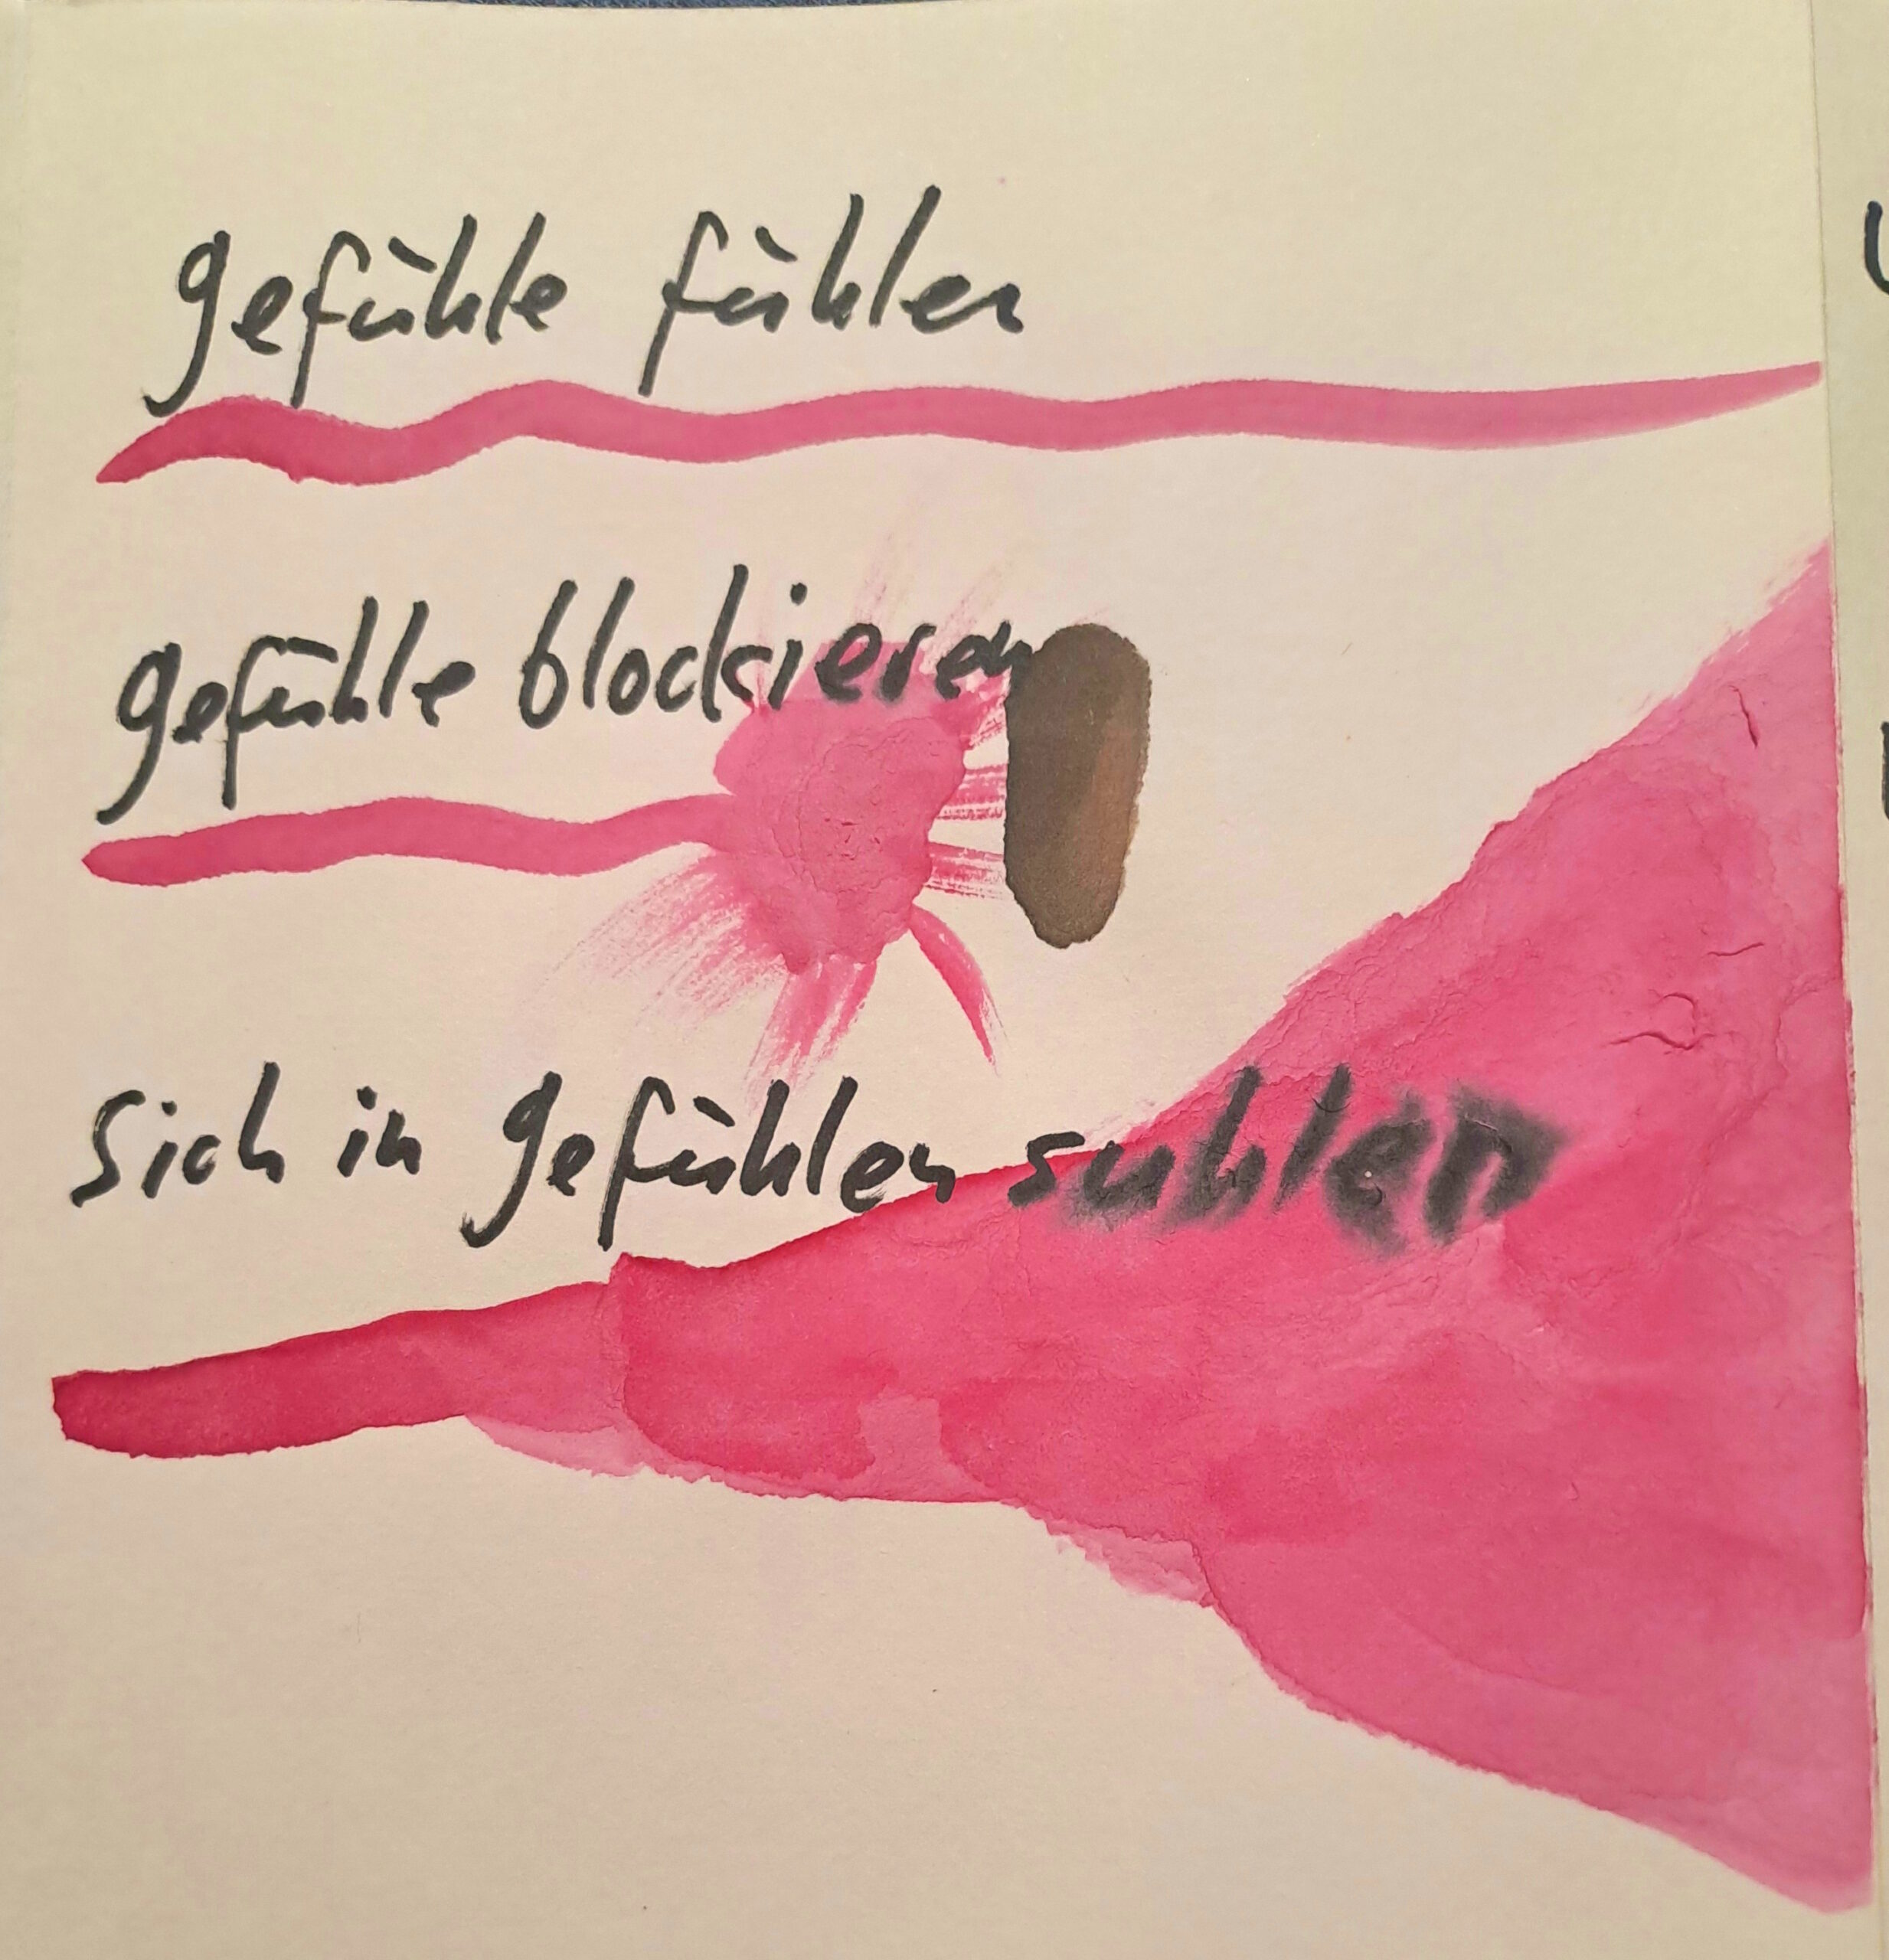 gefühle fühlen
gefühle blockieren
sich in gefühlen suhlen